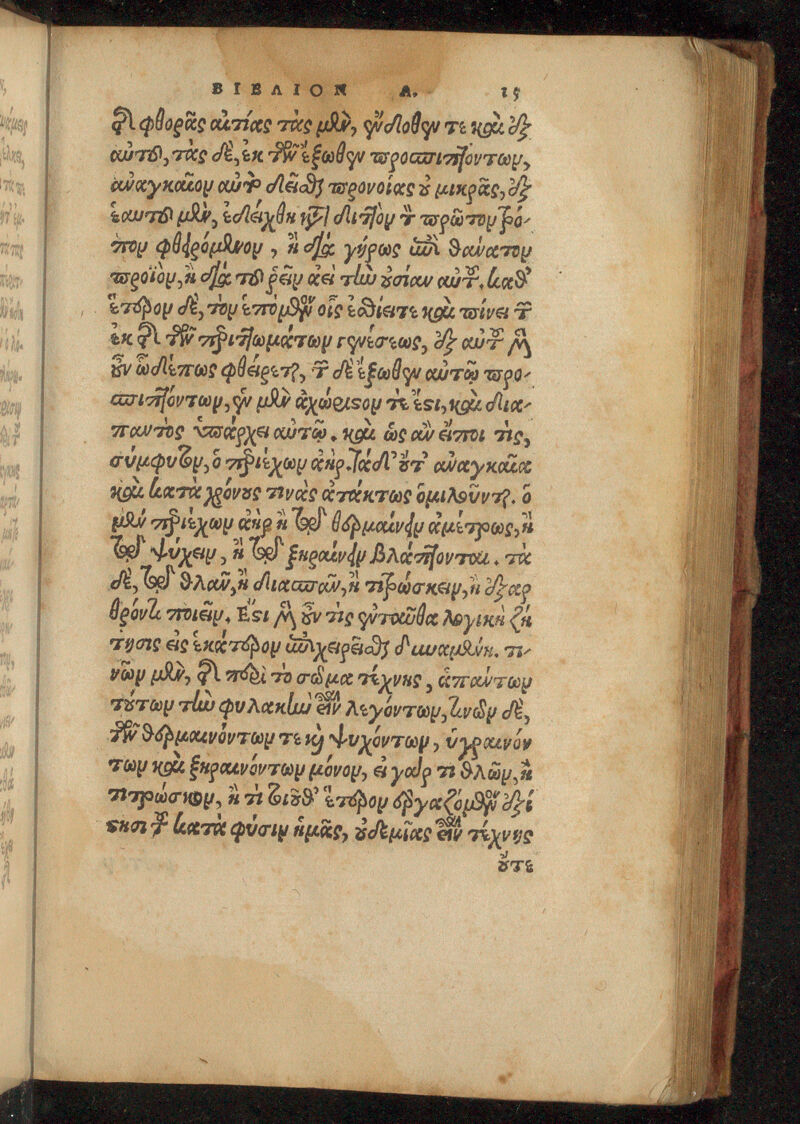 ΒΙΒΛΙΟΝ Α. ις
τῆς φθορᾶς αἰτίας τὰς μὲν, ἔνδοθεν τε καὶ ἐξ
αὐτοῦ, τὰς δὲ, ἐκ τῶν ἔξωθεν προσπιπτόντων,
ἀναγκαῖον αὐτὸ δεῖσθαι προνοίας οὐ μικρᾶς, ἐξ
ἑαυτοῦ μὲν, ἐδείχθη κατὰ διττὸν τὸν πρῶτον τρό-
πον φθειρόμενον, ἢ διὰ γήρως ἐπὶ θάνατον
προϊὸν, ἢ διὰ τοῦ ῥεῖν ἀεὶ τὴν οὐσίαν αὐτοῦ. καθ'
ἕτερον δὲ, τὸν ἑπόμενον οἷς ἐσθίει τε καὶ πίνει τὸν
ἐκ τῆς τῶν περιττωμάτων γενέσεως, ἐξ αὐτοῦ μὲν
οὖν ὧδέ πως φθείρεται, τῶν δὲ ἔξωθεν αὐτῷ προ-
σπιπτόντων, ἓν μὲν ἀχώριστον τέ ἐστι, καὶ δια-
παντὸς ὑπάρχει αὐτῷ. καὶ ὡς ἂν εἴποι τις,
σύμφυτον, ὁ περιέχων ἀήρ. τὰ δ' οὔτ' ἀναγκαῖα
καὶ κατὰ χρόνους τινὰς ἀτάκτως ὁμιλοῦνται. ὁ
μὲν περιέχων ἀὴρ ἢ τῷ θερμαίνειν ἀμέτρως, ἢ
τῷ ψύχειν, ἢ τῷ ξηραίνειν βλάπτονται. τὰ
δὲ, τῷ θλᾶν, ἢ διασπᾶν, ἢ τιτρώσκειν, ἢ ἔξαρ
θρόν τι ποιεῖν. Ἔστι μὲν οὖν τις ἐνταῦθα λογικὴ ζή
τησις εἰς ἑκάτερον ἐπιχειρεῖσθαι δυναμένη. τι-
νῶν μὲν, τῆς περὶ τὸ σῶμα τέχνης, ἁπάντων
τούτων τὴν φυλακὴν εἶναι λεγόντων, τινῶν δὲ,
τῶν θερμαινόντων τε καὶ ψυχόντων, ὑγραινόν
των καὶ ξηραινόντων μόνον, εἰ γάρ τι θλῶν, ἢ
τιτρῶσκον, ἢ τι τοιοῦθ' ἕτερον ἐργαζόμενον ἐξί
στησι τοῦ κατὰ φύσιν ἡμᾶς, οὐδεμίας εἶναι τέχνης
οὔτε